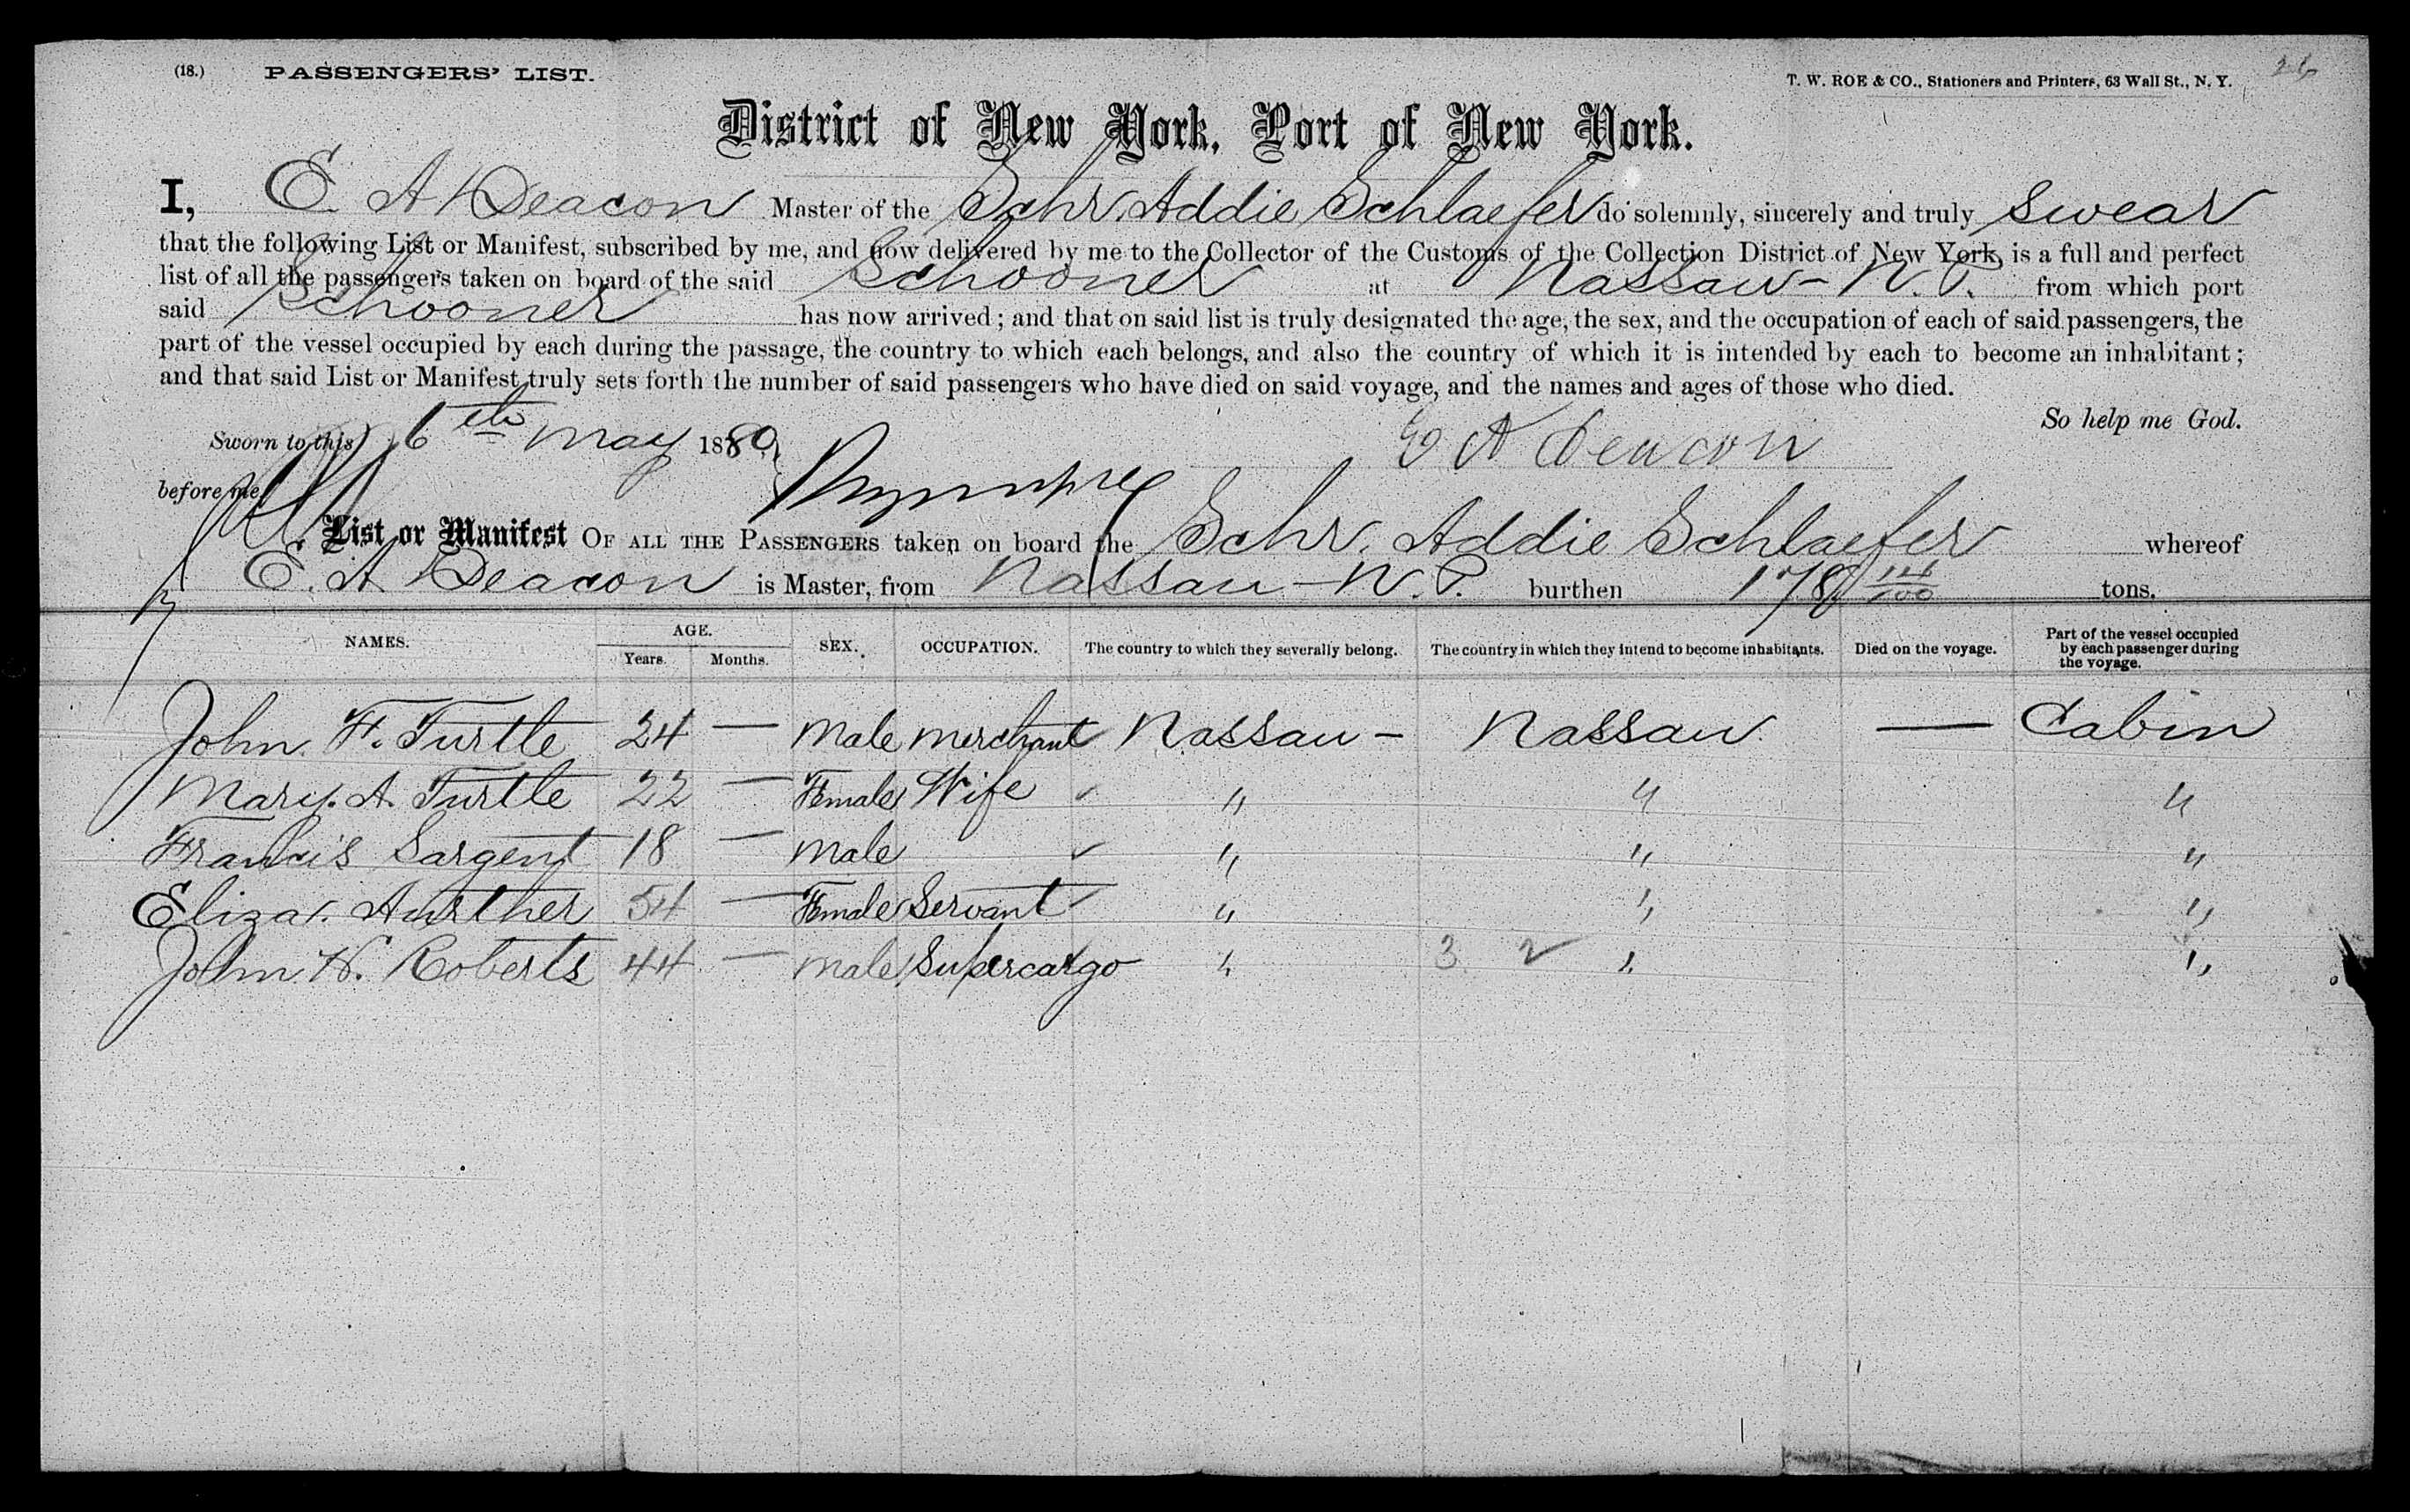 (18.) PASSENGERS' LIST. T. W. ROE & CO., Stationers and Printers, 63 Wall St., N. Y.
District of New York, Port of New York.
I, E. A Deacon Master of the Schr. Addie Schlaefer do solemnly, sincerely and truly swear
that the following List or Manifest, subscribed by me, and now delivered by me to the Collector of the Customs of the Collection District of New York, is a full and perfect
list of all the passengers taken on board of the said Schooner at Nassau - N. P. from which port
said Schooner has now arrived; and that on said list is truly designated the age, the sex, and the occupation of each of said passengers, the
part of the vessel occupied by each during the passage, the country to which each belongs, and also the country of which it is intended by each to become an inhabitant;
and that said List or Manifest truly sets forth the number of said passengers who have died on said voyage, and the names and ages of those who died.
So help me God.
Sworn to this 6th May 1880 E A Deacon
before me
List or Manifest OF ALL THE PASSENGERS taken on board the Schr. Addie Schlaefer whereof
E. A Deacon is Master, from Nassau - N. P. burthen 178 14/100 tons.
NAMES. AGE. Years. Months. SEX. OCCUPATION. The country to which they severally belong. The country in which they intend to become inhabitants. Died on the voyage. Part of the vessel occupied by each passenger during the voyage.
John F. Turtle 24 — Male Merchant Nassau - Nassau — Cabin
Mary. A. Turtle 22 — Female Wife ✓ " " "
Francis Sargent 18 — Male ✓ " " "
Eliza. Aurther 54 — Female Servant ✓ " " "
John W. Roberts 44 — Male Supercargo " 3 2 " "